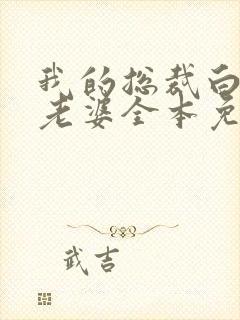 我的总裁白
老婆全本免
武吉